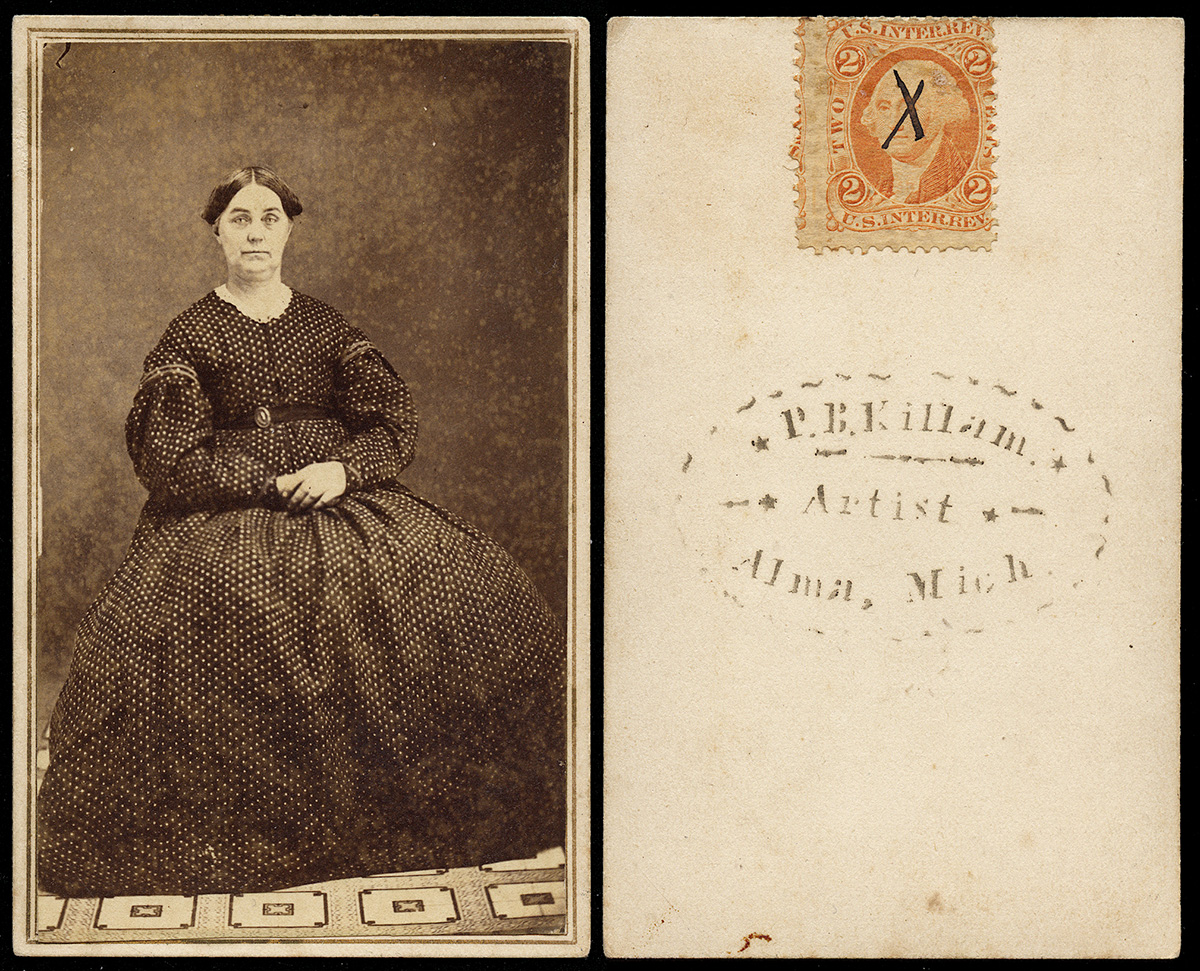 U.S. INTER. REV.
2 2
TWO CENTS
X
2 2
U.S. INTER. REV.
P. B. Killam.
Artist
Alma, Mich